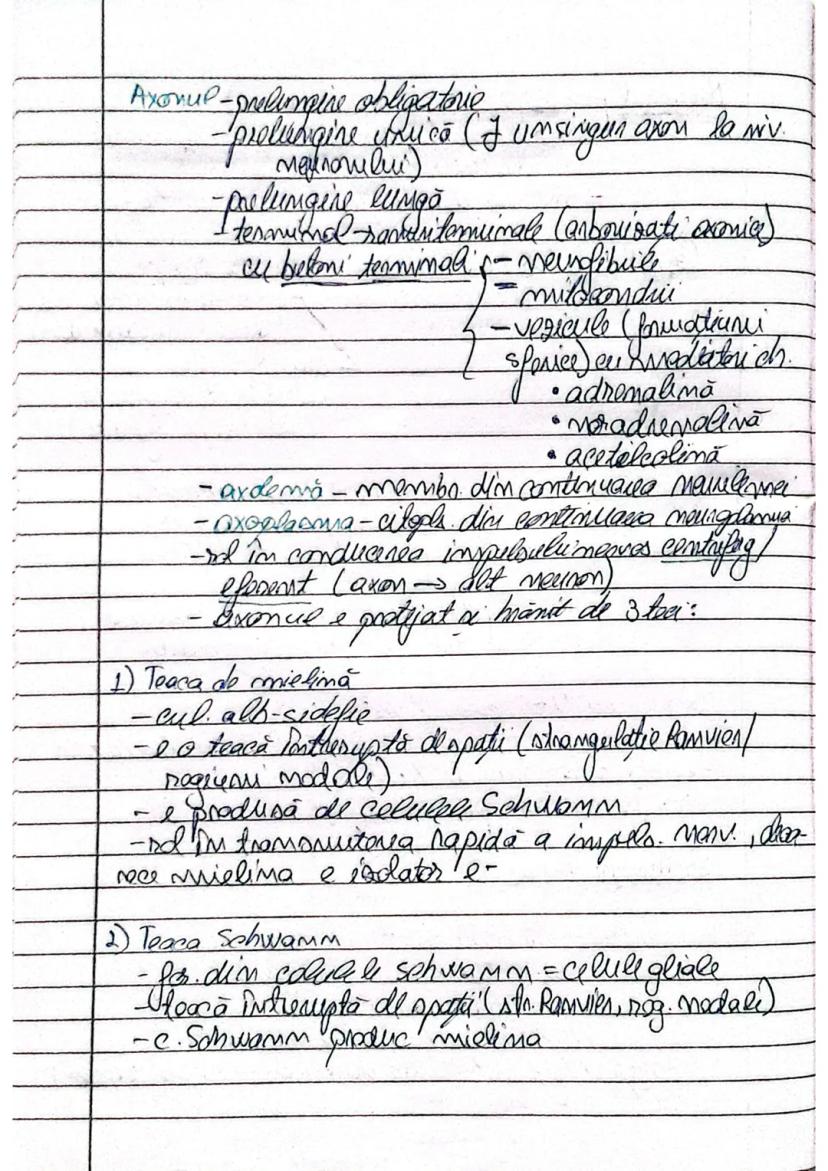 Axonul - prelungire obligatorie
- prelungire unică (∃ un singur axon la niv.
neuronului)
- prelungire lungă
- terminal → ramuri terminale (arborizații axonice)
cu butoni terminali - neurofibrile
- mitocondrii
- vezicule (formațiuni
sferice) cu mediatori ch.
• adrenalină
• noradrenalină
• acetilcolină
- axolemă - membr. din continuarea neurilemei
- axoplasma - citopl. din continuarea neuroplasma
- rol în conducerea impulsului nervos centrifug/
eferent (axon → alt neuron)
- axonul e protejat și hrănit de 3 teci:
1) Teaca de mielină
- cul. alb-sidefie
- e o teacă întreruptă de spații (strangulație Ranvier/
regiuni nodale)
- e produsă de celulele Schwann
- rol în transmiterea rapidă a impuls. nerv., deoa-
rece mielina e izolator e-
2) Teaca Schwann
- for. din celulele schwann = celule gliale
- teacă întreruptă de spații (str. Ranvier, reg. nodale)
- c. Schwann produc mielina